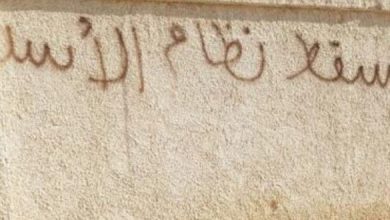 سقط نظام الأسد